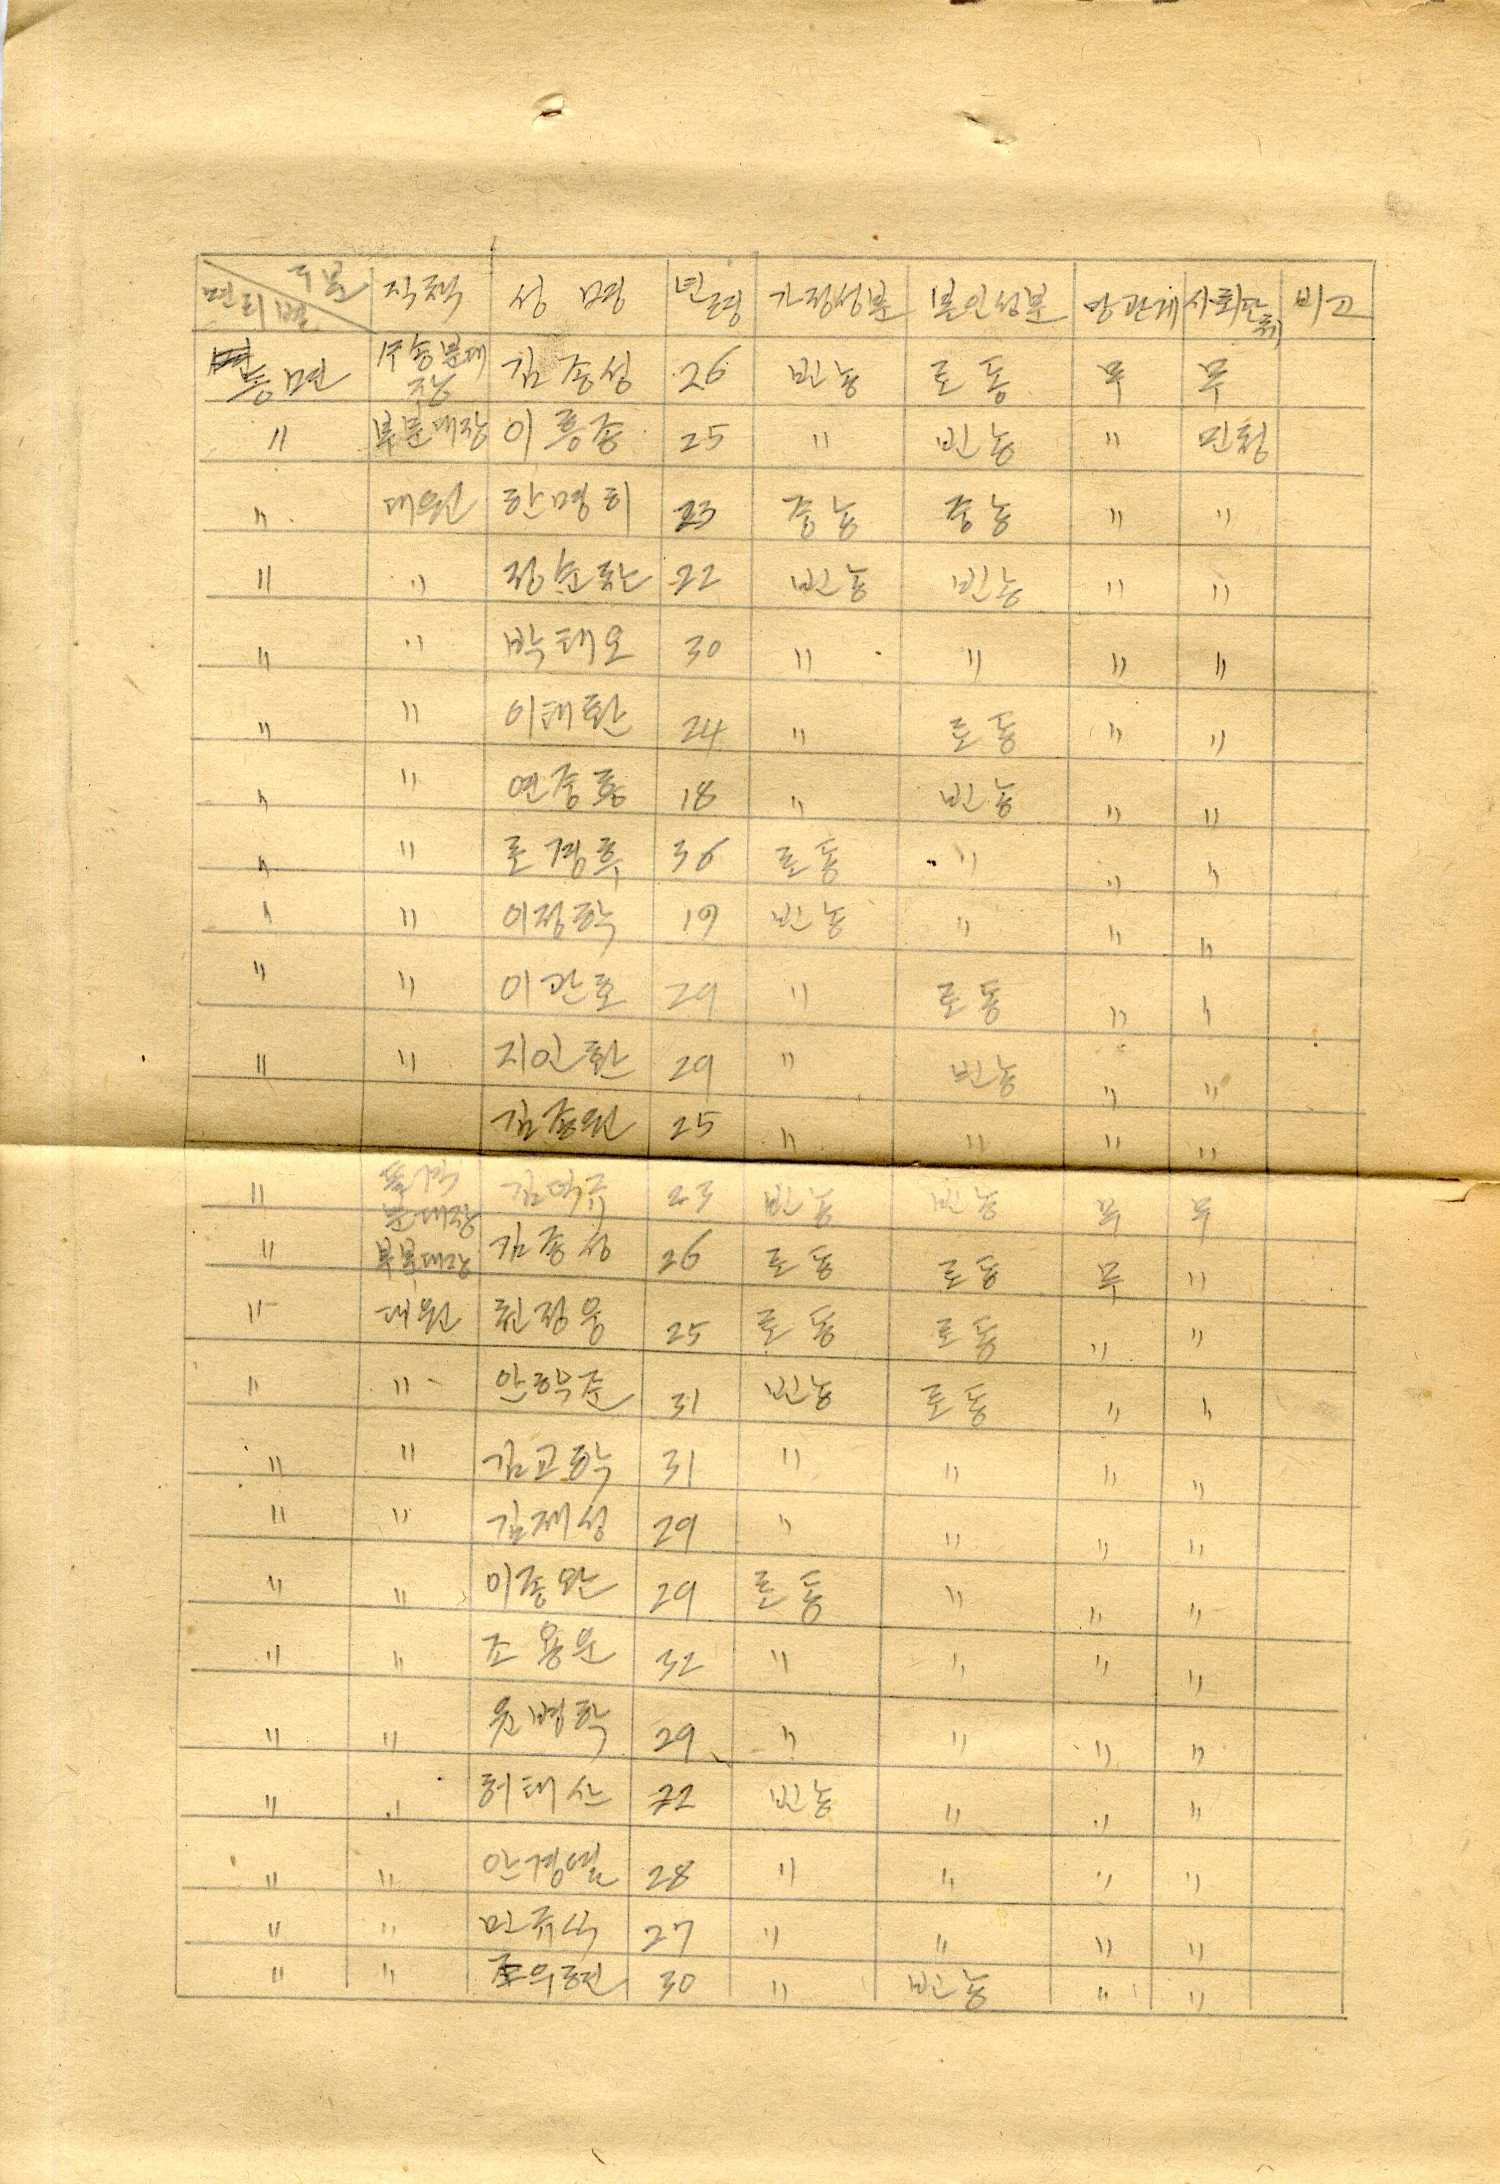 구분 면리별 직책 성명 년령 가정성분 본인성분 당관계 사회단체 비고
동면 수송분대장 김종성 26 빈농 로동 무 무
〃 부분대장 이흥종 25 〃 빈농 〃 민청
〃 대원 한명히 23 중농 중농 〃 〃
〃 〃 정순환 22 빈농 빈농 〃 〃
〃 〃 박태오 30 〃 〃 〃 〃
〃 〃 이태환 24 〃 로동 〃 〃
〃 〃 연종흠 18 〃 빈농 〃 〃
〃 〃 로경휵 36 로동 〃 〃 〃
〃 〃 이정학 19 빈농 〃 〃 〃
〃 〃 이관호 29 〃 로동 〃 〃
〃 〃 지인환 29 〃 빈농 〃 〃
김종원 25 〃 〃 〃 〃
〃 분대장 김덕규 23 빈농 빈농 무 무
〃 부분대장 김종성 26 로동 로동 무 〃
〃 대원 현정웅 25 로동 로동 〃 〃
〃 〃 안학준 31 빈농 로동 〃 〃
〃 〃 김교학 31 〃 〃 〃 〃
〃 〃 김재성 29 〃 〃 〃 〃
〃 〃 이종완 29 로동 〃 〃 〃
〃 〃 조용운 32 〃 〃 〃 〃
〃 〃 윤병학 29 〃 〃 〃 〃
〃 〃 허태산 22 빈농 〃 〃 〃
〃 〃 안경열 28 〃 〃 〃 〃
〃 〃 민규식 27 〃 〃 〃 〃
〃 〃 조의현 30 〃 빈농 〃 〃